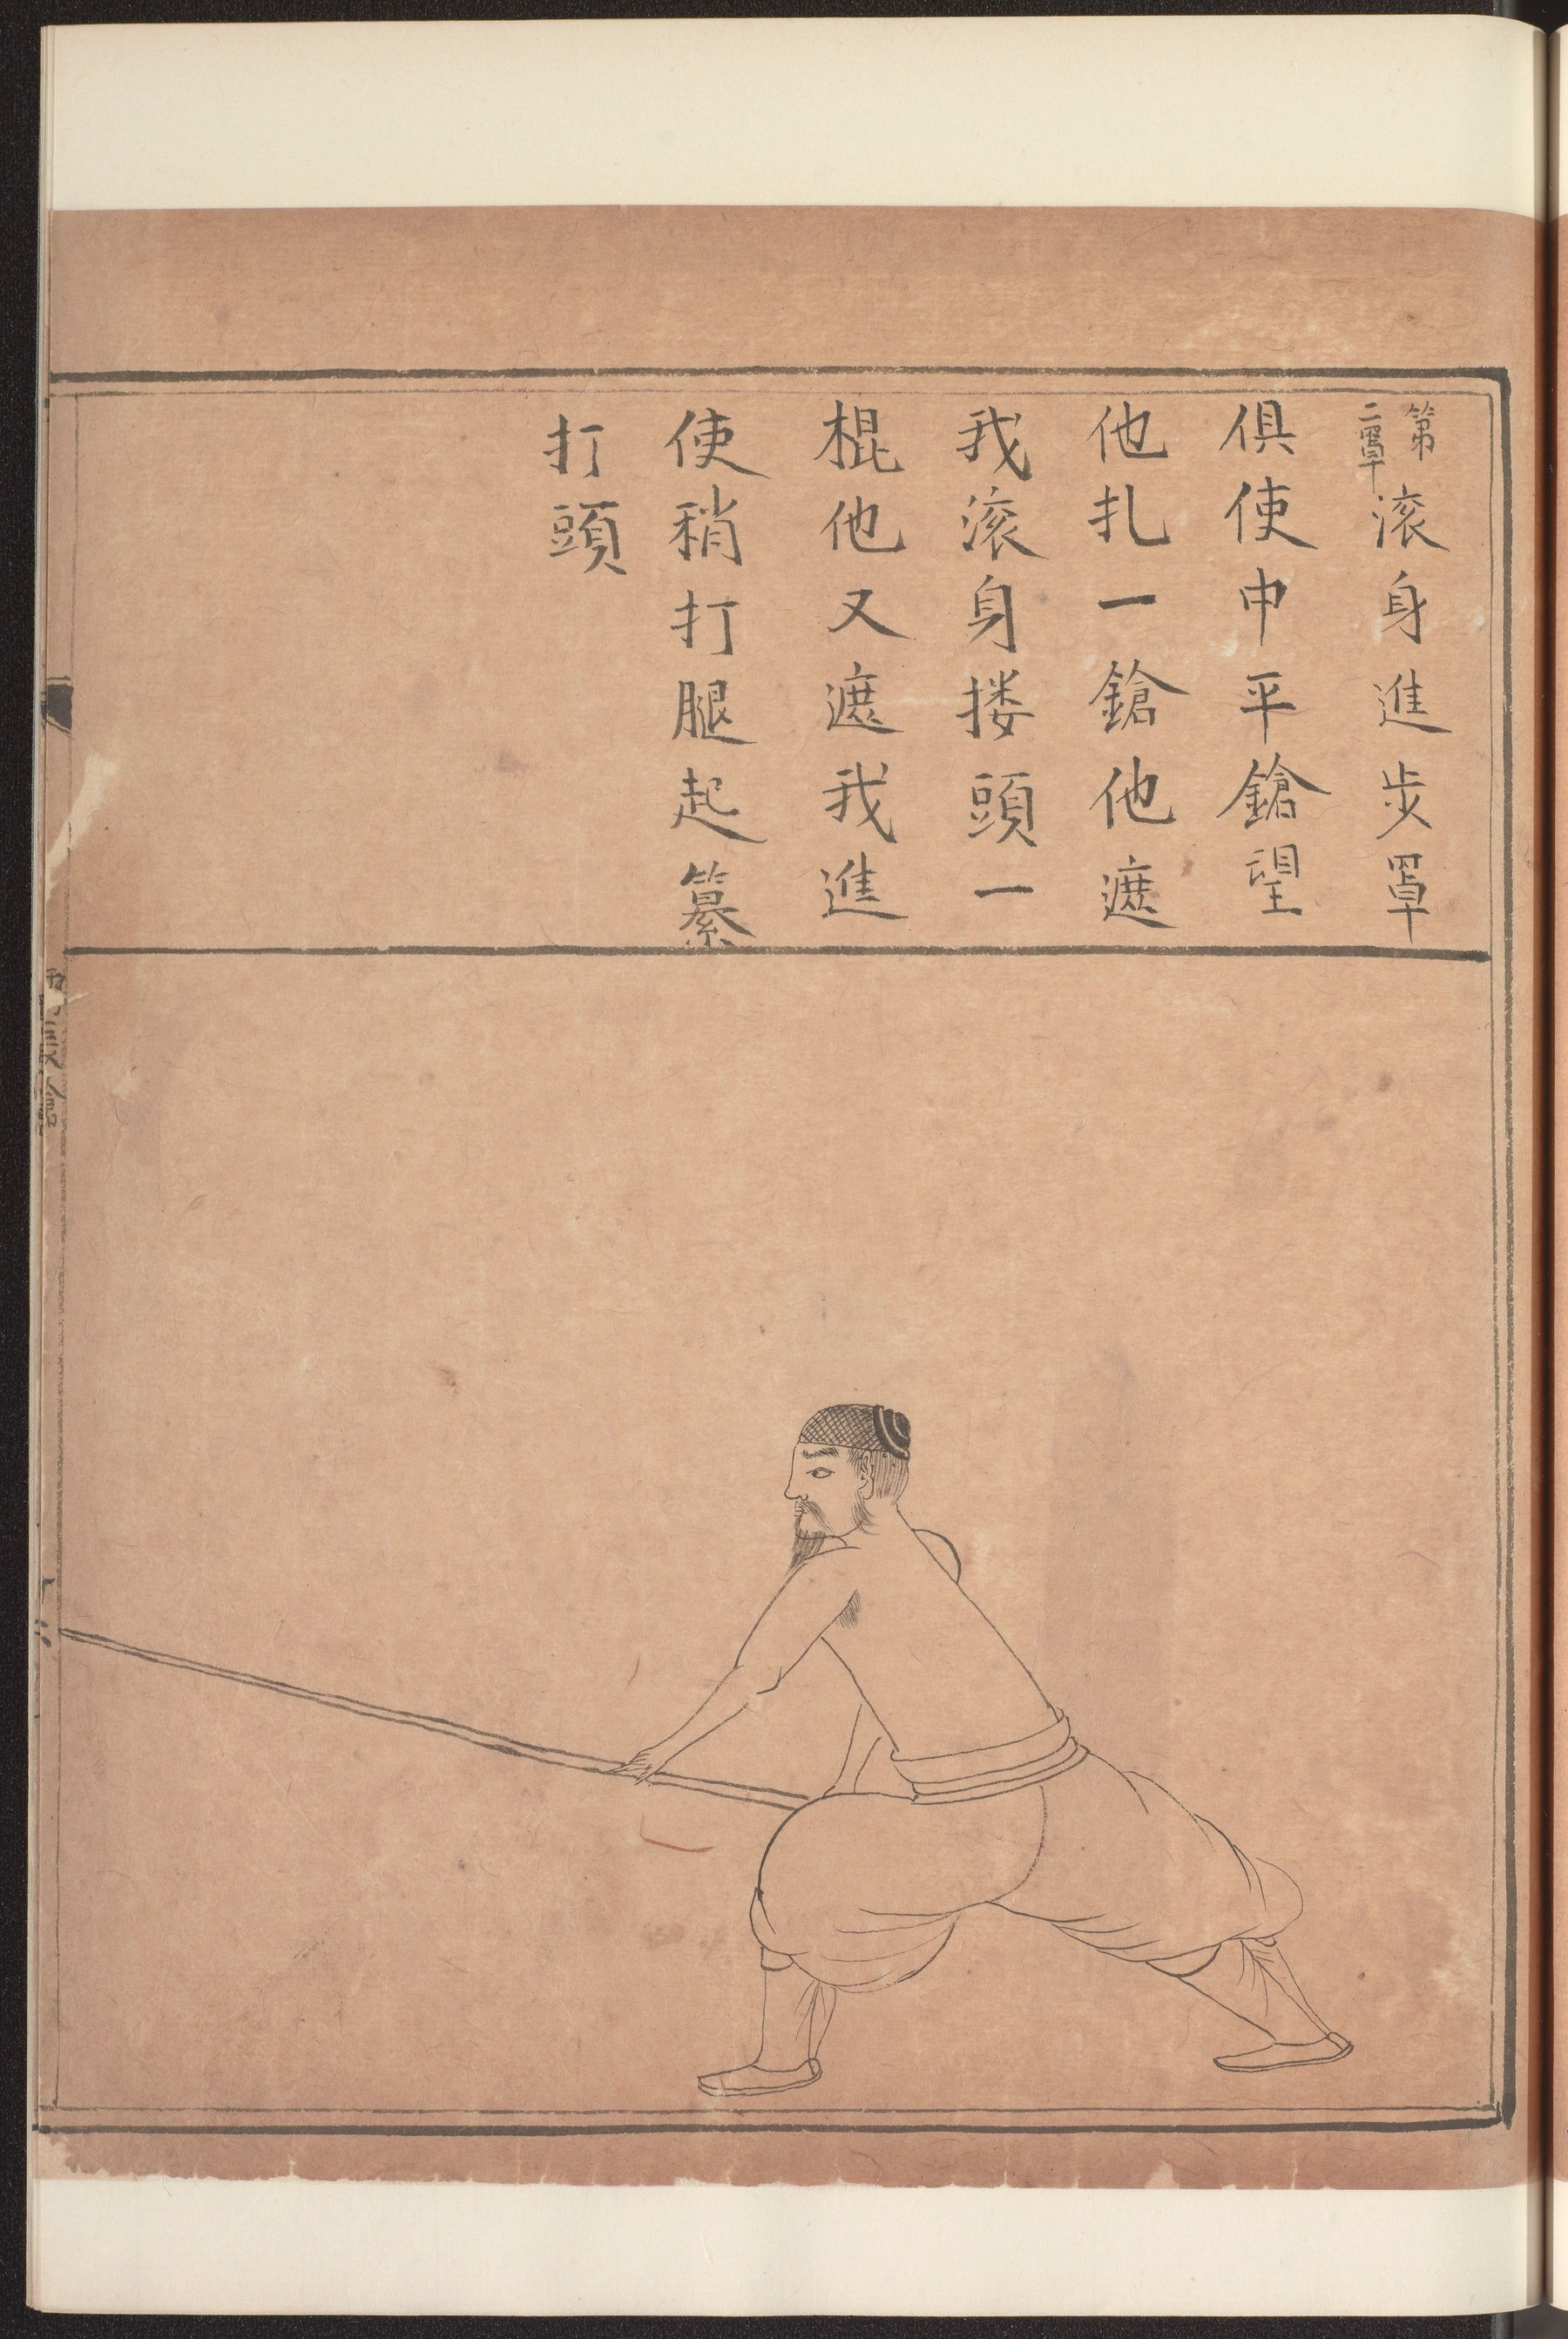 第二罩滚身進步罩
俱使中平鎗望
他扎一鎗他遮
我滚身搂頭一
棍他又遮我進
使稍打腿起纂
打頭